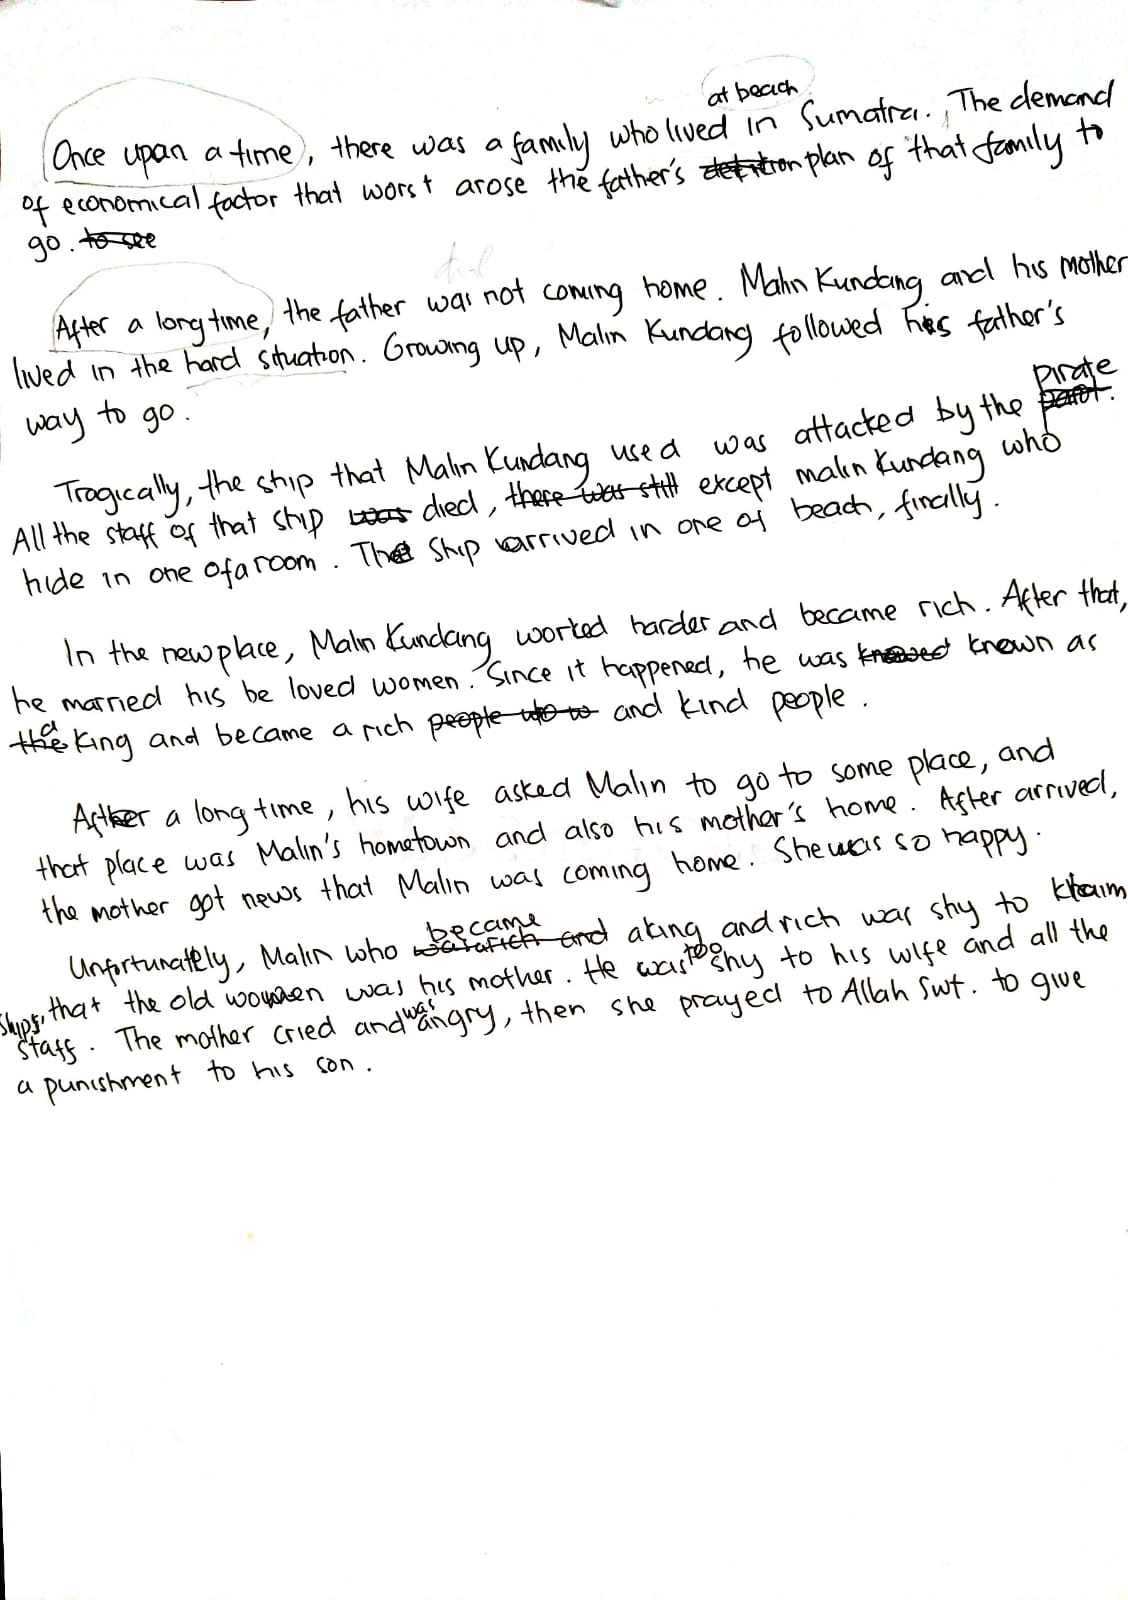 at beach
Once upon a time, there was a family who lived in Sumatra. The demand
of economical factor that worst arose the father's plan of that family to
go. to see
After a long time, the father was not coming home. Malin Kundang and his mother
lived in the hard situation. Growing up, Malin Kundang followed his father's
way to go.
pirate
Tragically, the ship that Malin Kundang used was attacked by the parot.
All the staff of that ship was died, there was still except malin Kundang who
hide in one of a room. The Ship arrived in one of beach, finally.
In the new place, Malin Kundang worked harder and became rich. After that,
he married his be loved women. Since it happened, he was knowed known as
a
the King and became a rich people who w and kind people.
After a long time, his wife asked Malin to go to some place, and
that place was Malin's hometown and also his mother's home. After arrived,
the mother got news that Malin was coming home. She was so happy.
became
Unfortunately, Malin who was a rich and a king and rich was shy to klaim
that the old women was his mother. He was too shy to his wife and all the
ships'
staff. The mother cried and was angry, then she prayed to Allah Swt. to give
a punishment to his son.